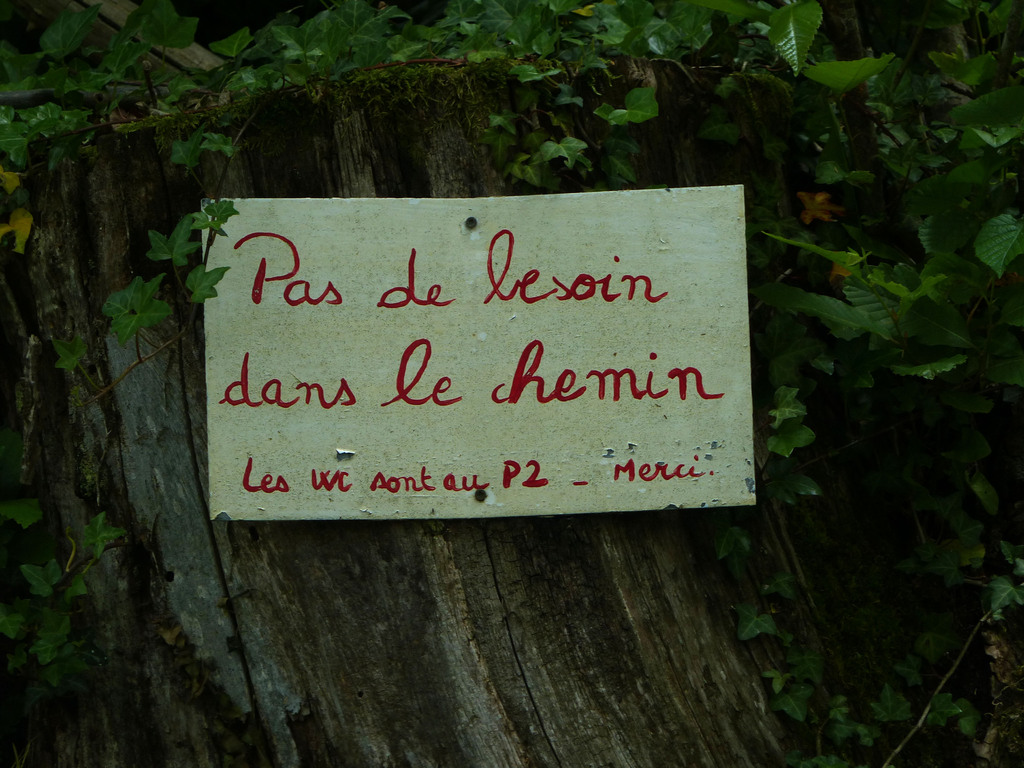 Pas de besoin
dans le chemin
Les WC sont au P2 _ Merci.